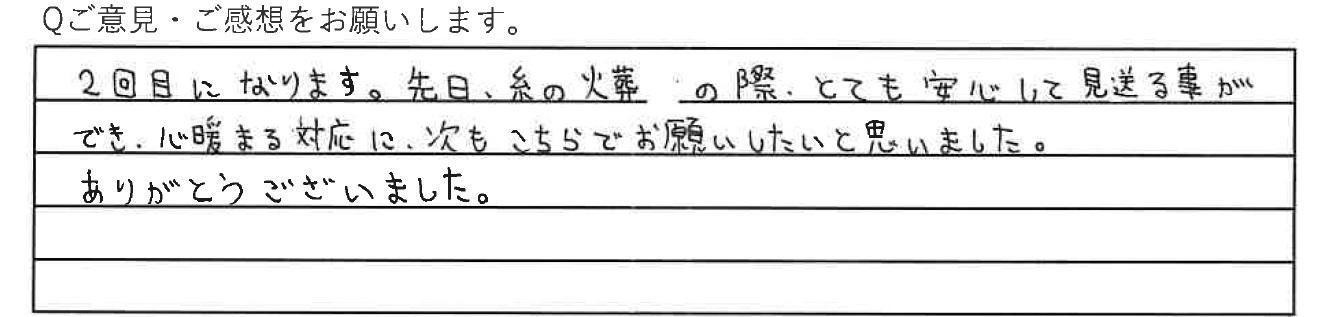 Qご意見・ご感想をお願いします。
2回目になります。先日、糸の火葬の際、とても安心して見送る事が
でき、心暖まる対応に、次もこちらでお願いしたいと思いました。
ありがとうございました。